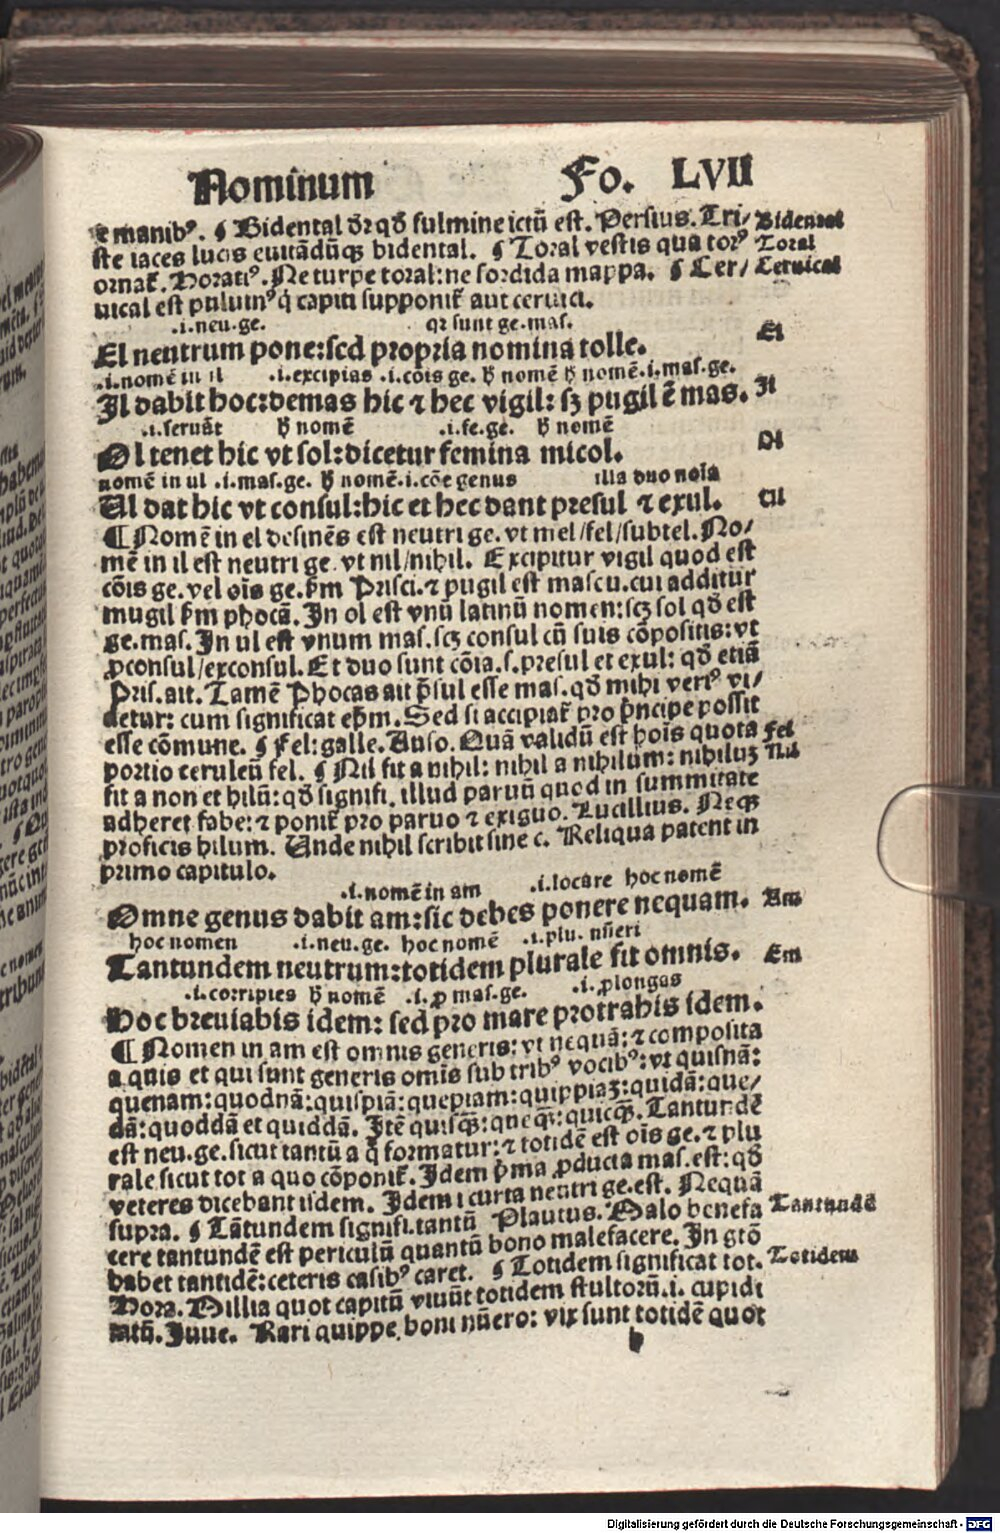 Nominum Fo. LVII
⁊ manibꝰ. ¶ Bidental dꝛ qď fulmine ictū est. Persius. Tri/ Bidental
ste iaces lucis euitādūqꝫ bidental. ¶ Toral vestis qua torꝰ Toral
ornat̃. Horatiꝰ. Ne turpe toral: ne sordida mappa. ¶ Cer/ Ceruical
uical est puluinꝰ q̇ capiti supponit̃ aut ceruici.
.i.neu.ge. qꝛ sunt ge.mas.
El neutrum pone: sed propria nomina tolle. El
.i.nomē in il .i.excipias .i.cōis ge. ħ nomē ħ nomē.i.mas.ge.
Il dabit hoc: demas hic ⁊ hec vigil: sꝫ pugil ē mas. Il
.i.seruāt ħ nomē .i.fe.ge. ħ nomē
Ol tenet hic vt sol: dicetur femina micol. Ol
nomē in ul .i.mas.ge. ħ nomē.i.cōe genus illa duo noīa
Ul dat hic vt consul: hic et hec dant presul ⁊ exul. Ul
¶ Nomē in el desinēs est neutri ge. vt mel/fel/subtel. No/
mē in il est neutri ge. vt nil/nihil. Excipitur vigil quod est
cōis ge. vel oīs ge. ẜm Prisci. ⁊ pugil est mascu. cui additur
mugil ẜm phocā. In ol est vnū latinū nomen: scꝫ sol qď est
ge.mas. In ul est vnum mas. scꝫ consul cū suis cōpositis: vt
ꝓconsul/exconsul. Et duo sunt cōia. s. presul et exul: qď etiā
Pris. ait. Tamē Phocas ait p̄sul esse mas. qď mihi veriꝰ vi/
detur: cum significat ep̄m. Sed si accipiat̃ pro p̄ncipe possit
esse cōmune. ¶ Fel: galle. Auso. Quā validū est hoīs quota Fel
portio ceruleū fel. ¶ Nil fit a nihil: nihil a nihilum: nihiluꝫ Nil
fit a non et hilū: qď signifi. illud paruū quod in summitate
adheret fabe: ⁊ ponit̃ pro paruo ⁊ exiguo. Lucillius. Neqꝫ
proficis hilum. Unde nihil scribit sine c. Reliqua patent in
primo capitulo.
.i.nomē in am .i.locare hoc nomē
Omne genus dabit am: sic debes ponere nequam. Am
hoc nomen .i.neu.ge. hoc nomē .i.plu. nūeri
Tantundem neutrum: totidem plurale fit omnis. Em
.i.corripies ħ nomē .i.ꝓ mas.ge. .i.ꝓlongas
Hoc breuiabis idem: sed pro mare protrahis idem.
¶ Nomen in am est omnis generis: vt nequā: ⁊ composita
a quis et qui sunt generis omīs sub tribꝰ vocibꝰ: vt quisnā:
quenam: quodnā: quispiā: quepiam: quippiaꝫ: quidā: que/
dā: quoddā et quiddā. Itē quisqꝫ: queqꝫ: quicqꝫ. Tantundē
est neu.ge. sicut tantū a q̇ formatur: ⁊ totidē est oīs ge. ⁊ plu
rale sicut tot a quo cōponit̃. Idem p̄ma ꝓducta mas. est: qď
veteres dicebant iſdem. Idem i curta neutri ge. est. Nequā
supra. ¶ Tātundem signifi. tantū Plautus. Malo benefa Tantundē
cere tantundē est periculū quantū bono malefacere. In gtō
habet tantidē: ceteris casibꝰ caret. ¶ Totidem significat tot. Totidem
Hora. Millia quot capitū viuūt totidem stultorū. i. cupidi
Juue. Rari quippe boni nūero: vix sunt totidē quot
h
Digitalisierung gefördert durch die Deutsche Forschungsgemeinschaft - DFG